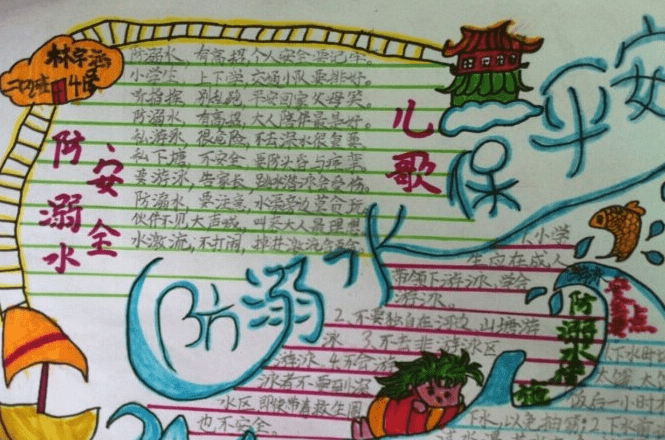 林字涵
二(2)班 4
防溺水
安全
儿歌
防溺水,有高招,个人安全要记牢。
小学生,上下学,交通小队要排好。
听指挥,别乱跑,平安回家父母笑。
防溺水,有高招,大人陪伴最是好。
私游泳,很危险,不去深水很重要。
私下塘,不安全,要防头昏与痉挛。
要游泳,告家长,跳水潜泳会受伤。
防溺水,要注意,水温旁边莫合玩。
伙伴不见大声喊,叫来大人最理想
水激流,不打闹,
防溺水
保平安
1.小学
生应在成人
带领下游泳,学会
游泳。
2.不要独自在河边、山塘游
泳 3.不去非游泳区
游泳 4.不会游
泳者不要到深
水区 即使带着救生圈
也不安全。
防溺水措施
下水时
饭后一小时
下水,以免抽筋;2.下水前